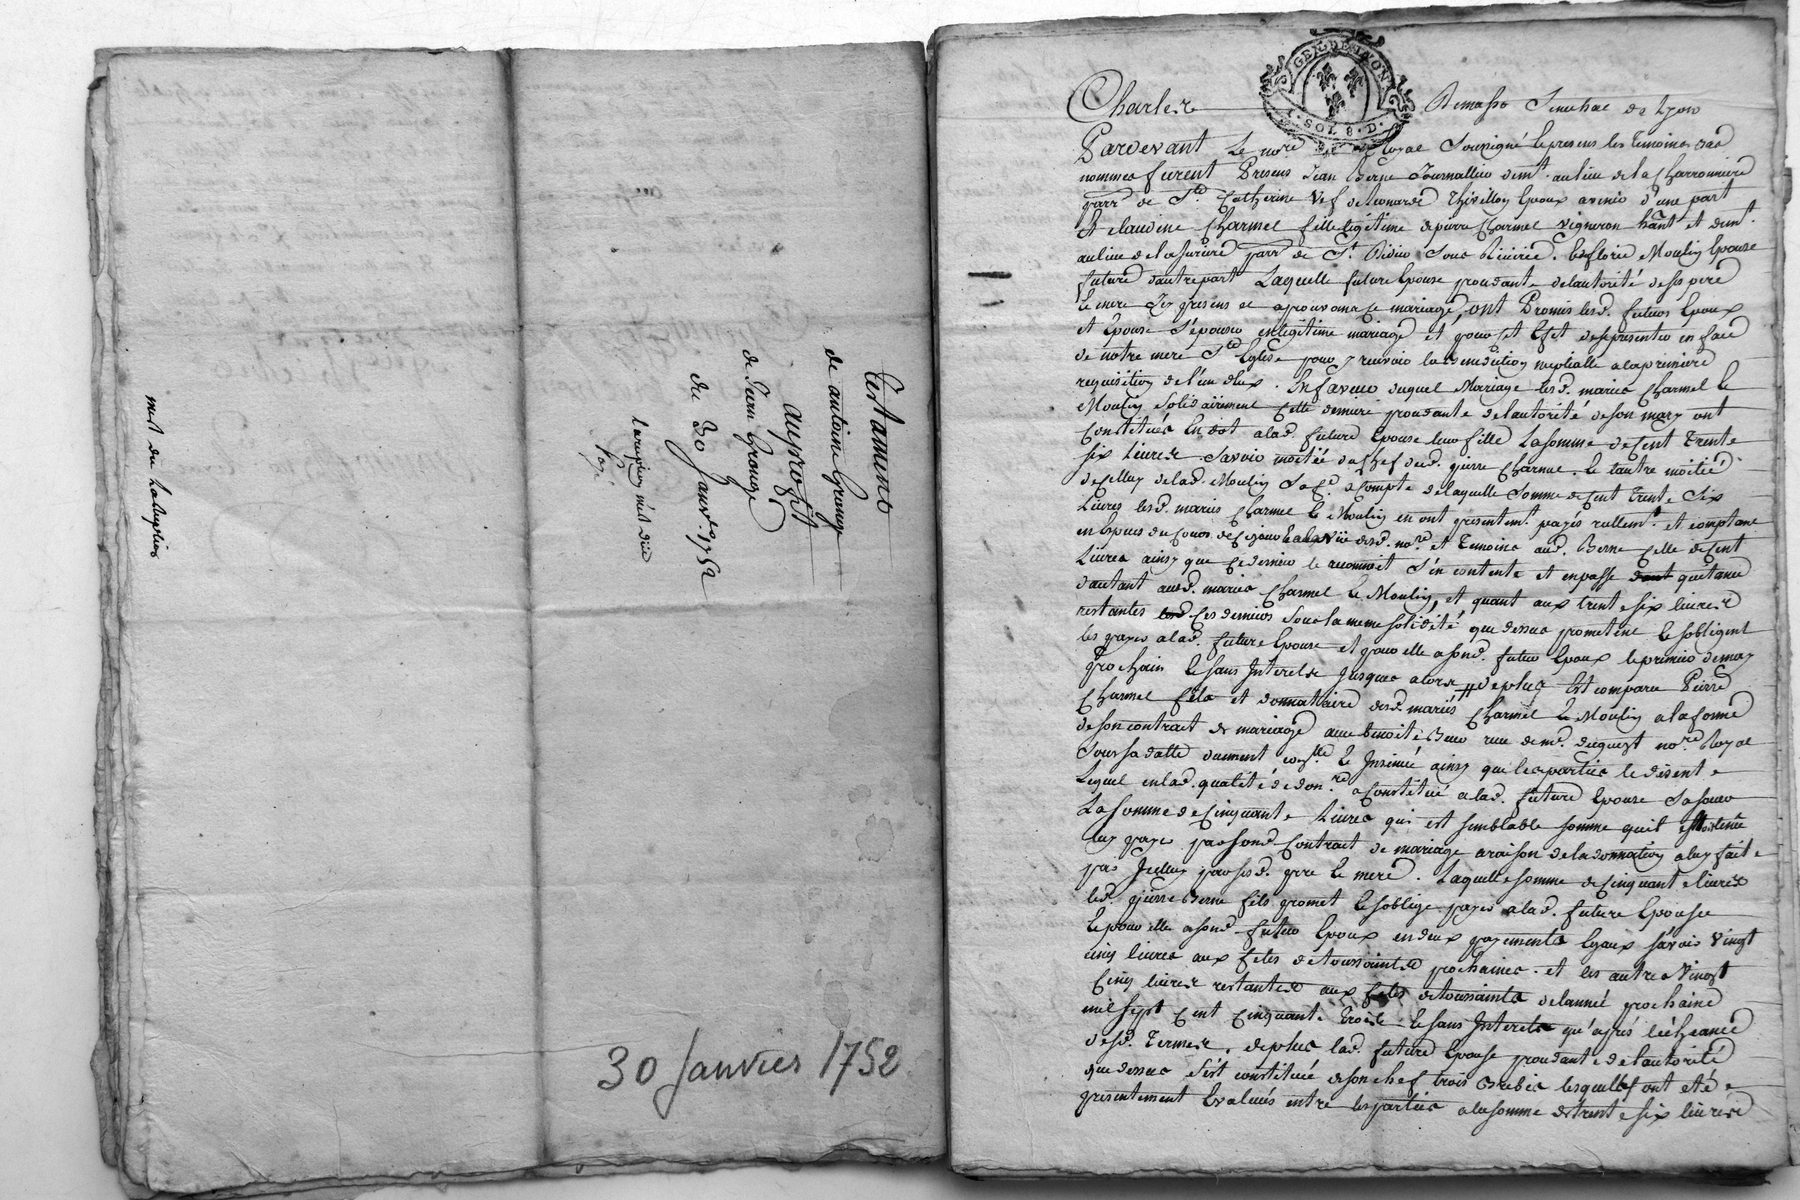 Testament
de antoine Grange
au profit
de Jean Grange
du 30 Janv.r 1752
30 Janvier 1752
GEN. DE LYON
1. SOL 8. D.
Charles Demasso Senechal de Lyon
Pardevant Le no.re Royal Soussigné & presens les temoins bas
nommes furent Presens Jean Berne Journallier dem.t au lieu de la Charronniere
parr.e de S.te Catherine Vef de Leonarde Thivilloy Epoux avenir d'une part
Et claudine Charmel fille legitime de pierre Charmel vigneron hãnt et dem.t
au lieu de la parr.e de S.t Didier Sous Riviere & florie Moulin Epouse
future dautre part Laquelle future Epouse procedante de lautorité de ses pere
& mere Icy presens et aprouvans ce mariage, ont Promis lesd. futurs Epoux
et Epouse S'épouser en legitime mariage et pour cet Efet de se presenter en face
de notre mere S.te Eglise pour y recevoir la benediction nuptialle a la premiere
requisition de l'un deux. En faveur duquel Mariage lesd. maries Charmel &
Moulin Solidairement Cette derniere procedante de lautorité de son mary ont
Constitués En dot a lad. future Epouse leur fille La somme de Cent Trente
Six Livres Savoir moitié du Chef dud. pierre Charmel & lautre moitié
de celluy de lad. Moulin a Compte de laquelle Somme de Cent Trente Six
Livres lesd. maries Charmel & Moulin en ont presentem.t payés reellem.t et comptant
en Especes du Cours de Ce jour & a la vüe desd. no.re et Temoins aud. Berne Celle de Cent
Livres ainsy que Ce dernier le reconnoit S'en contente et en passe quitance
dautant ausd. maries Charmel & Moulin, et quant aux trente six livres
restantes Ces derniers Sous la meme solidité que dessus prometent & sobligent
les payer a lad. future Epouse et pour elle a sond. futur Epoux le premier de may
prochain & sans Interets Jusques alors # de plus Est comparu Pierre
Charmel fils et donnataire desd. mariés Charmel & Moulin a la forme
de son contrat de mariage avec benoite reçu de m.e no.re Royal
Sous sa datte duement cont.llé & Insinué ainsy que les parties le disent
Lequel en lad. qualité de don.re a Constitué a lad. future Epouse Sa soeur
La somme de Cinquante Livres qui est semblable somme quil est tenu
luy payer par sond. Contrat de mariage a raison de la donnation a luy faite
par Iceluy par sesd. pere & mere. Laquelle somme de Cinquante livres
led. pierre Berne fils promet & soblige payer a lad. future Epouse
& pour elle a sond. futur Epoux en deux payements Egaux savoir Vingt
cinq livres aux fetes de toussaints prochaines. et les autres Vingt
Cinq livres restantes aux fetes de toussaints de lannée prochaine
mil sept Cent Cinquante Trois & sans Interets qu'après l'échéance
desd. Termes. de plus lad. future Epouse procedante de lautorité
que dessus S'est constitué de son chef trois Brebis lesquelles ont été
presentement Evalués entre les parties a la somme de trente six livres